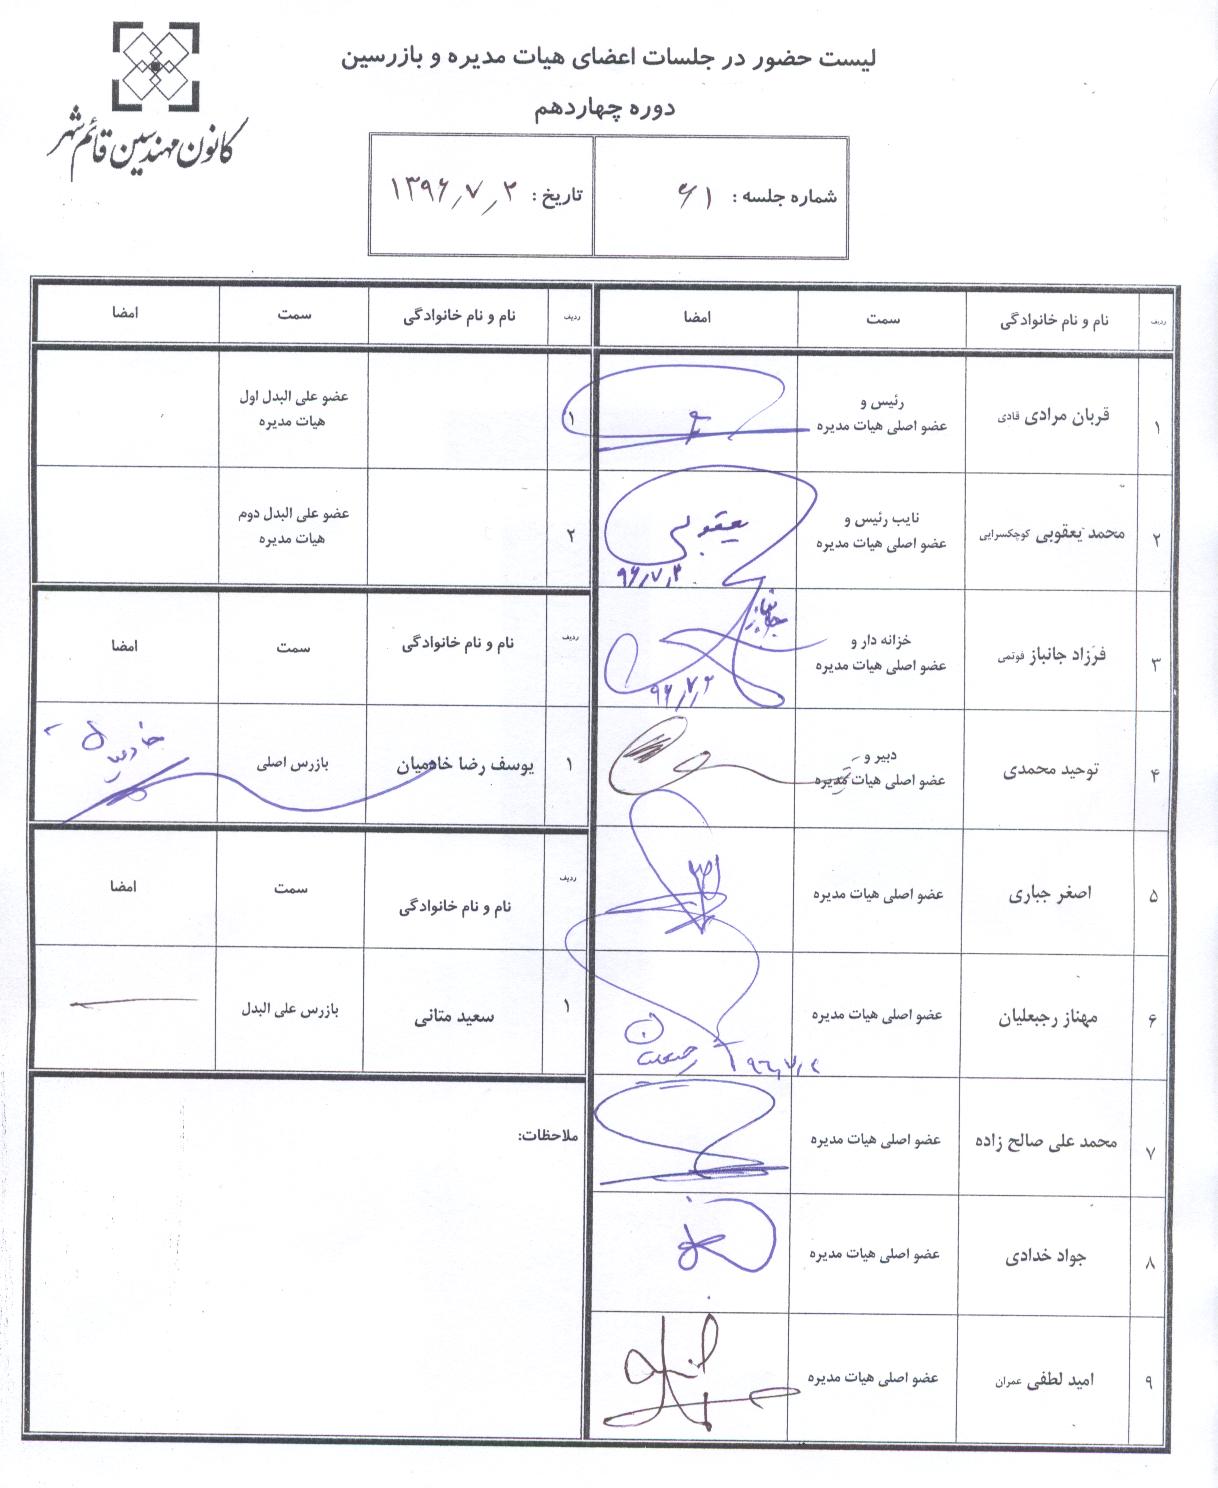 کانون مهندسین قائم شهر
لیست حضور در جلسات اعضای هیات مدیره و بازرسین
دوره چهاردهم
شماره جلسه : ۶۱
تاریخ : ۱۳۹۶٫۷٫۲
ردیف نام و نام خانوادگی سمت امضا
۱ قربان مرادی قادی رئیس و
عضو اصلی هیات مدیره
۲ محمد یعقوبی کوچکسرایی نایب رئیس و
عضو اصلی هیات مدیره
یعقوبی
۹۶٫۷٫۲
۳ فرزاد جانباز فوتمی خزانه دار و
عضو اصلی هیات مدیره
جانباز
۹۶٫۷٫۲
۴ توحید محمدی دبیر و
عضو اصلی هیات مدیره
۵ اصغر جباری عضو اصلی هیات مدیره
۶ مهناز رجبعلیان عضو اصلی هیات مدیره
۹۶٫۷٫۲
۷ محمد علی صالح زاده عضو اصلی هیات مدیره
۸ جواد خدادی عضو اصلی هیات مدیره
۹ امید لطفی عمران عضو اصلی هیات مدیره
ردیف نام و نام خانوادگی سمت امضا
۱ عضو علی البدل اول
هیات مدیره
۲ عضو علی البدل دوم
هیات مدیره
ردیف نام و نام خانوادگی سمت امضا
۱ یوسف رضا خادمیان بازرس اصلی
خادمیان
ردیف نام و نام خانوادگی سمت امضا
۱ سعید متانی بازرس علی البدل
ملاحظات: